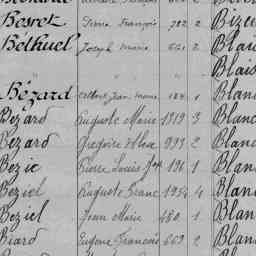 Besret Pierre François 782 2 Bizeu
Béthuel Joseph Marie 621 2 Blau
" " " Blais
Bézard Jean Marie 184 1 Blan
Bezard Auguste Marie 1719 3 Blanc
Bezard Grégoire 993 2 Blanc
Bezic Pierre Louis 196 1 Blan
Beziel Auguste Franc 1954 4 Blan
Beziel Jean Marie 480 1 Blan
Biard Eugène François 669 2 Blan